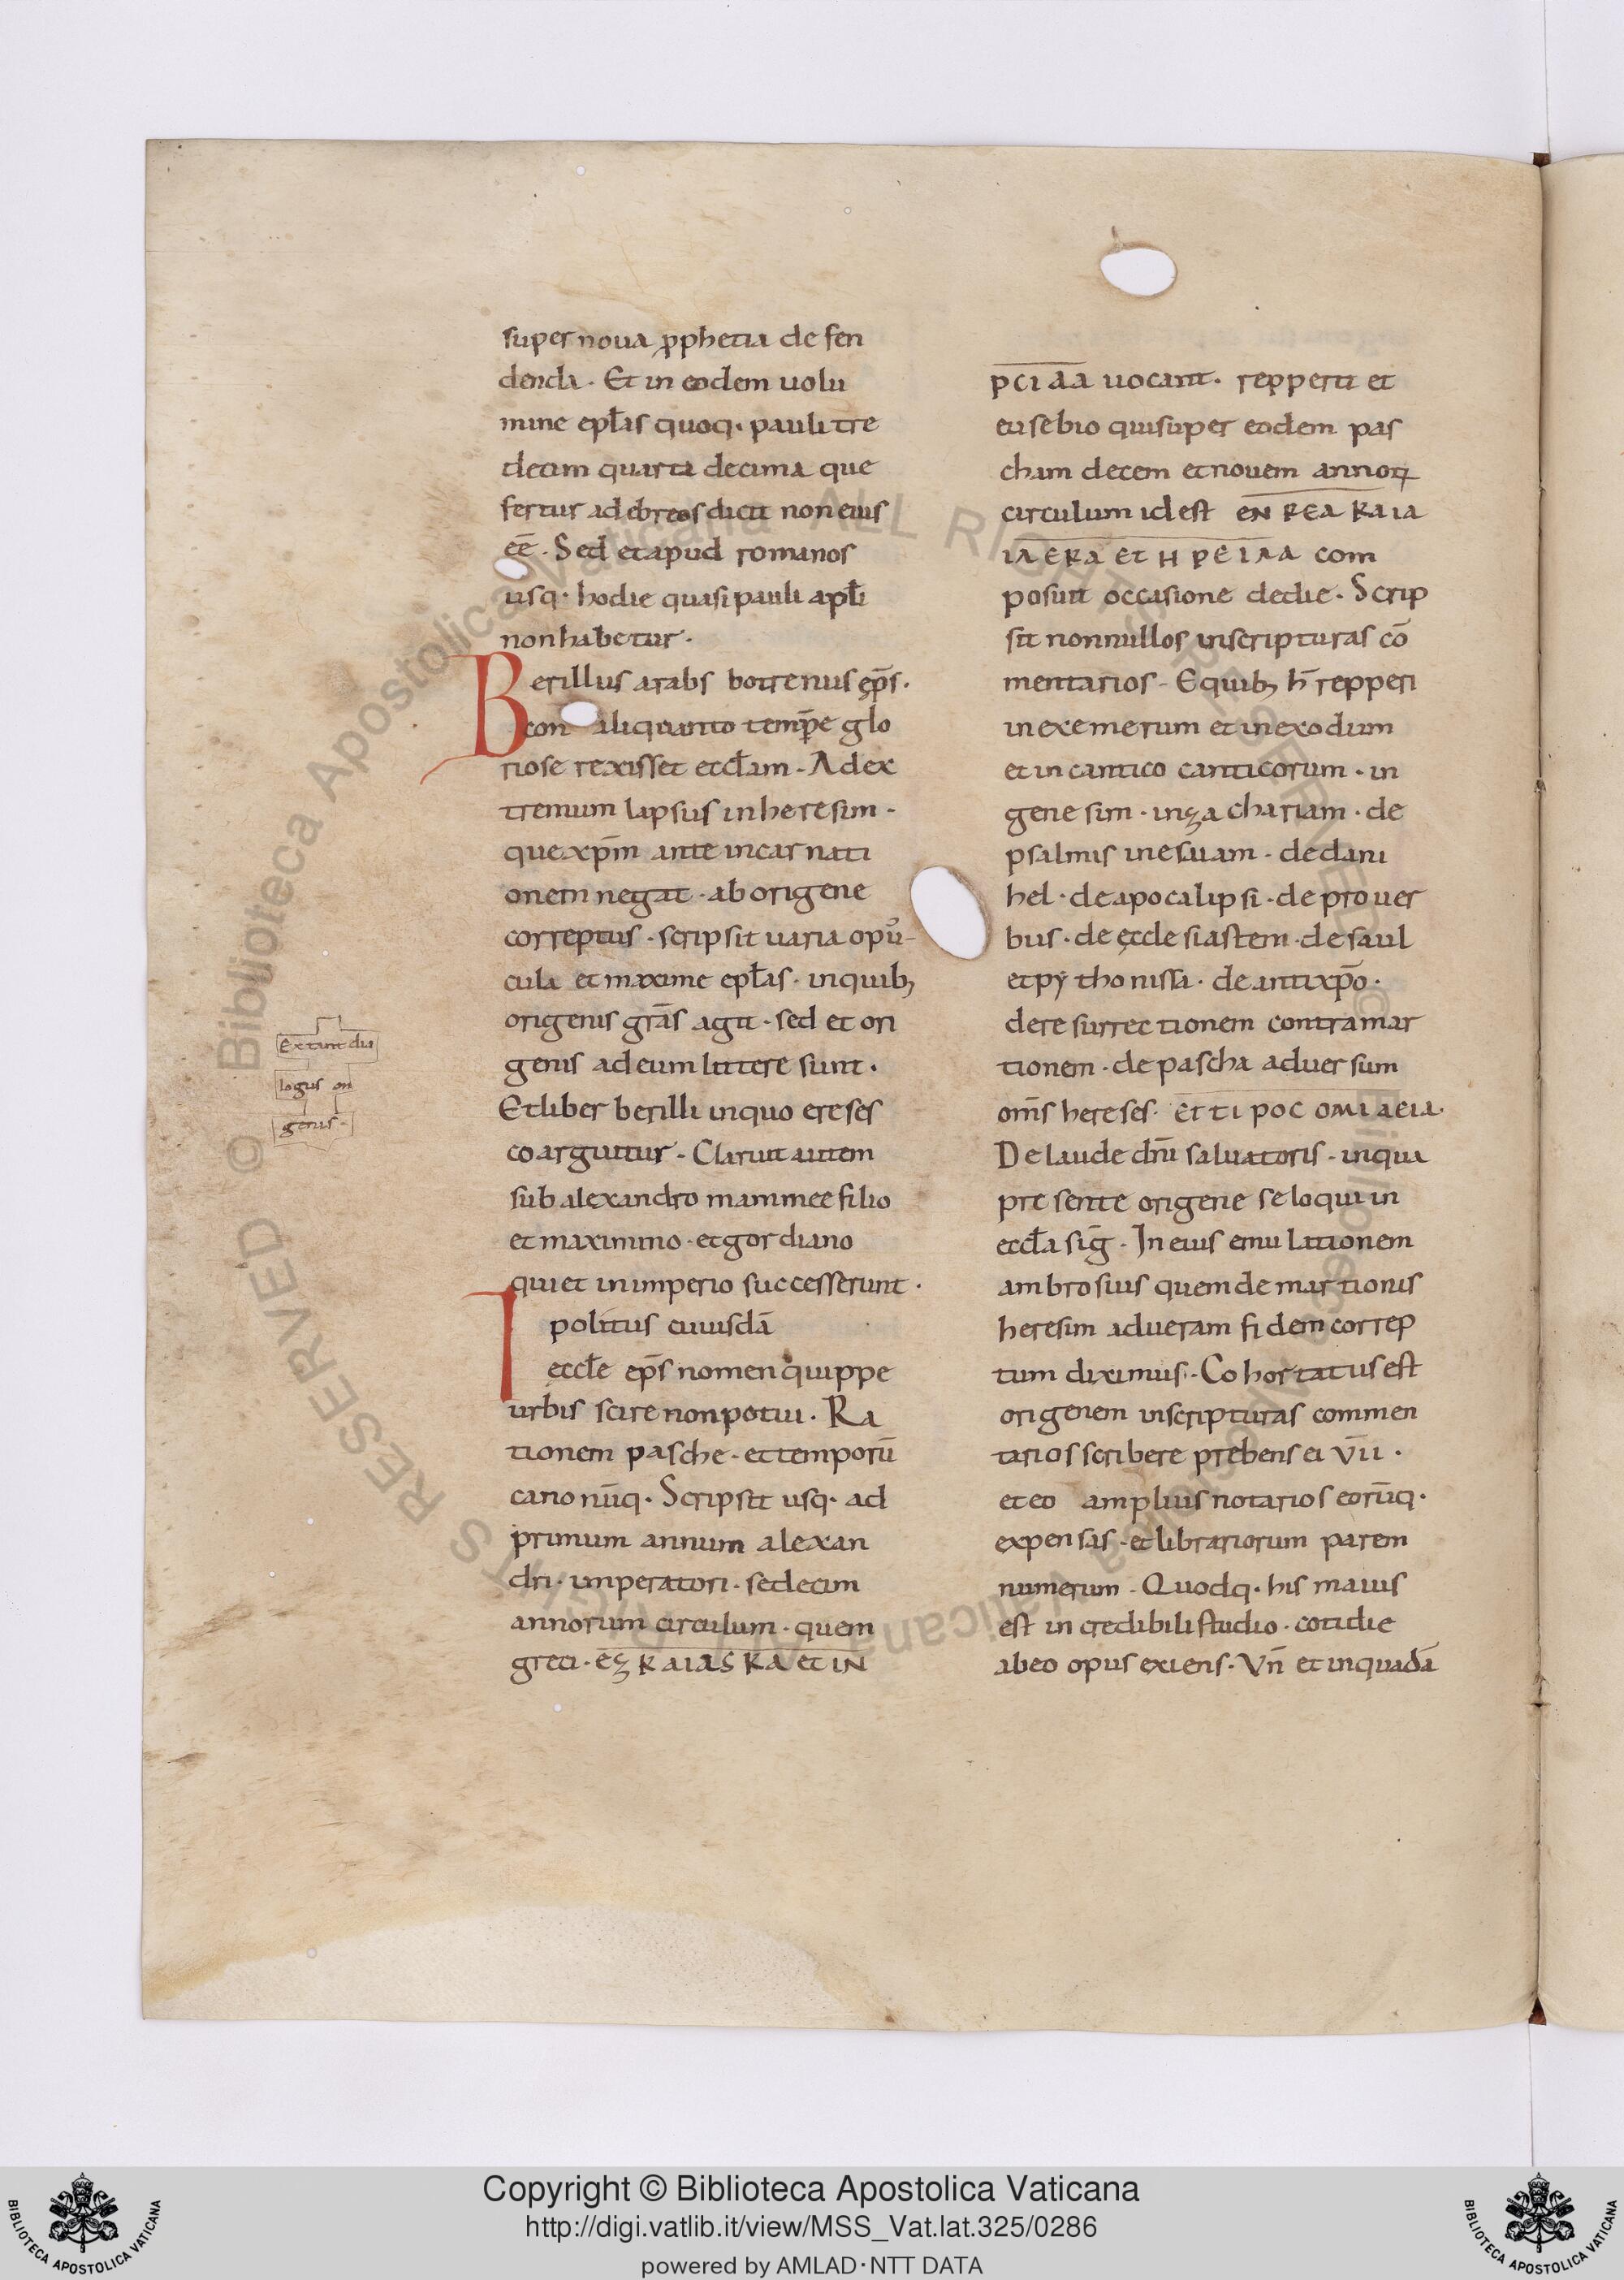 super noua ꝓphetia defen
denda · Et in eodem uolu
mine epl̄as quoq· pauli tre
decim quarta decima que
fertur ad ebreos dicit non eius
eē · Sed et apud romanos
usq· hodie quasi pauli apl̄i
non habetur ·
Berillus arabs botrenus ep̄s ·
con aliquanto temp̄e glo
riose rexisset eccl̄am · Ad ex
tremum lapsus in heresim ·
que xp̄m ante incarnati
onem negat · ab origene
correptus · scripsit uaria opu
cula et maxime epl̄as · in quibꝫ
origenis grās agit · sed et ori
genis ad eum littere sunt ·
Et liber berilli in quo ereses
coarguitur · Claruit autem
sub alexandro mammee filio
et maximino · et gordiano
qui et in imperio successerunt ·
Ipolitus cuiusdā
eccl̄e ep̄s nomen quippe
urbis scire non potui · Ra
tionem pasche · et temporū
canonūq· Scripsit usq· ad
primum annum alexan
dri · imperatori · sedecim
annorum circulum · quem
greci · eꝫ KAIAS KA et IN
Extunt dia
logus ori
genis ·
PCIAA uocant · repperit et
eusebio qui super eodem pas
cham decem et nouem annoꝝ
circulum id est EN KEA KAIA
IAEKA ET H PEIAA com
posuit occasione dedie · Scrip
sit nonnullos in scripturas cō
mentarios · E quibꝫ h̄ repperi
in exemerum et in exodum
et in cantico canticorum · in
genesim · in ꝫachariam · de
psalmis in esaiam · de dani
hel · de apocalipsi · de prouer
bus · de ęcclesiastem · de saul
et pythonissa · de antixp̄o ·
de resurrectionem contra mar
tionem · de pascha aduersum
om̄s hereses · ET TI POC OMI AEIA ·
De laude dn̄i saluatoris · in qua
presente origene se loqui in
eccl̄a siḡ · In eius emulationem
ambrosius quem de martionis
heresim ad ueram fidem correp
tum diximus · Cohortatus est
origenem in scripturas commen
tarios scribere prebens ei VII ·
et eo amplius notarios eorūq·
expensas · et librariorum parem
numerum · Quodq· his maius
est incredibili studio · cotidie
ab eo opus exiens · Vn̄ et in quadā
Copyright © Biblioteca Apostolica Vaticana
http://digi.vatlib.it/view/MSS_Vat.lat.325/0286
powered by AMLAD·NTT DATA
BIBLIOTECA APOSTOLICA VATICANA
BIBLIOTECA APOSTOLICA VATICANA